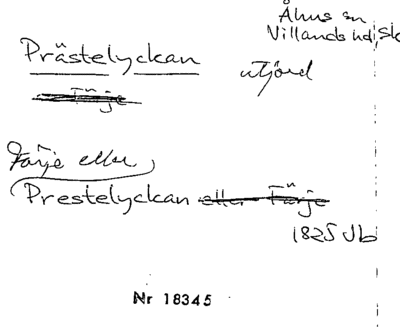 Åhus sn
Villands hd, Sk
Prästelyckan utjord
Färje
Färje eller
Prestelyckan eller Färje
1825 Jb
Nr 18345